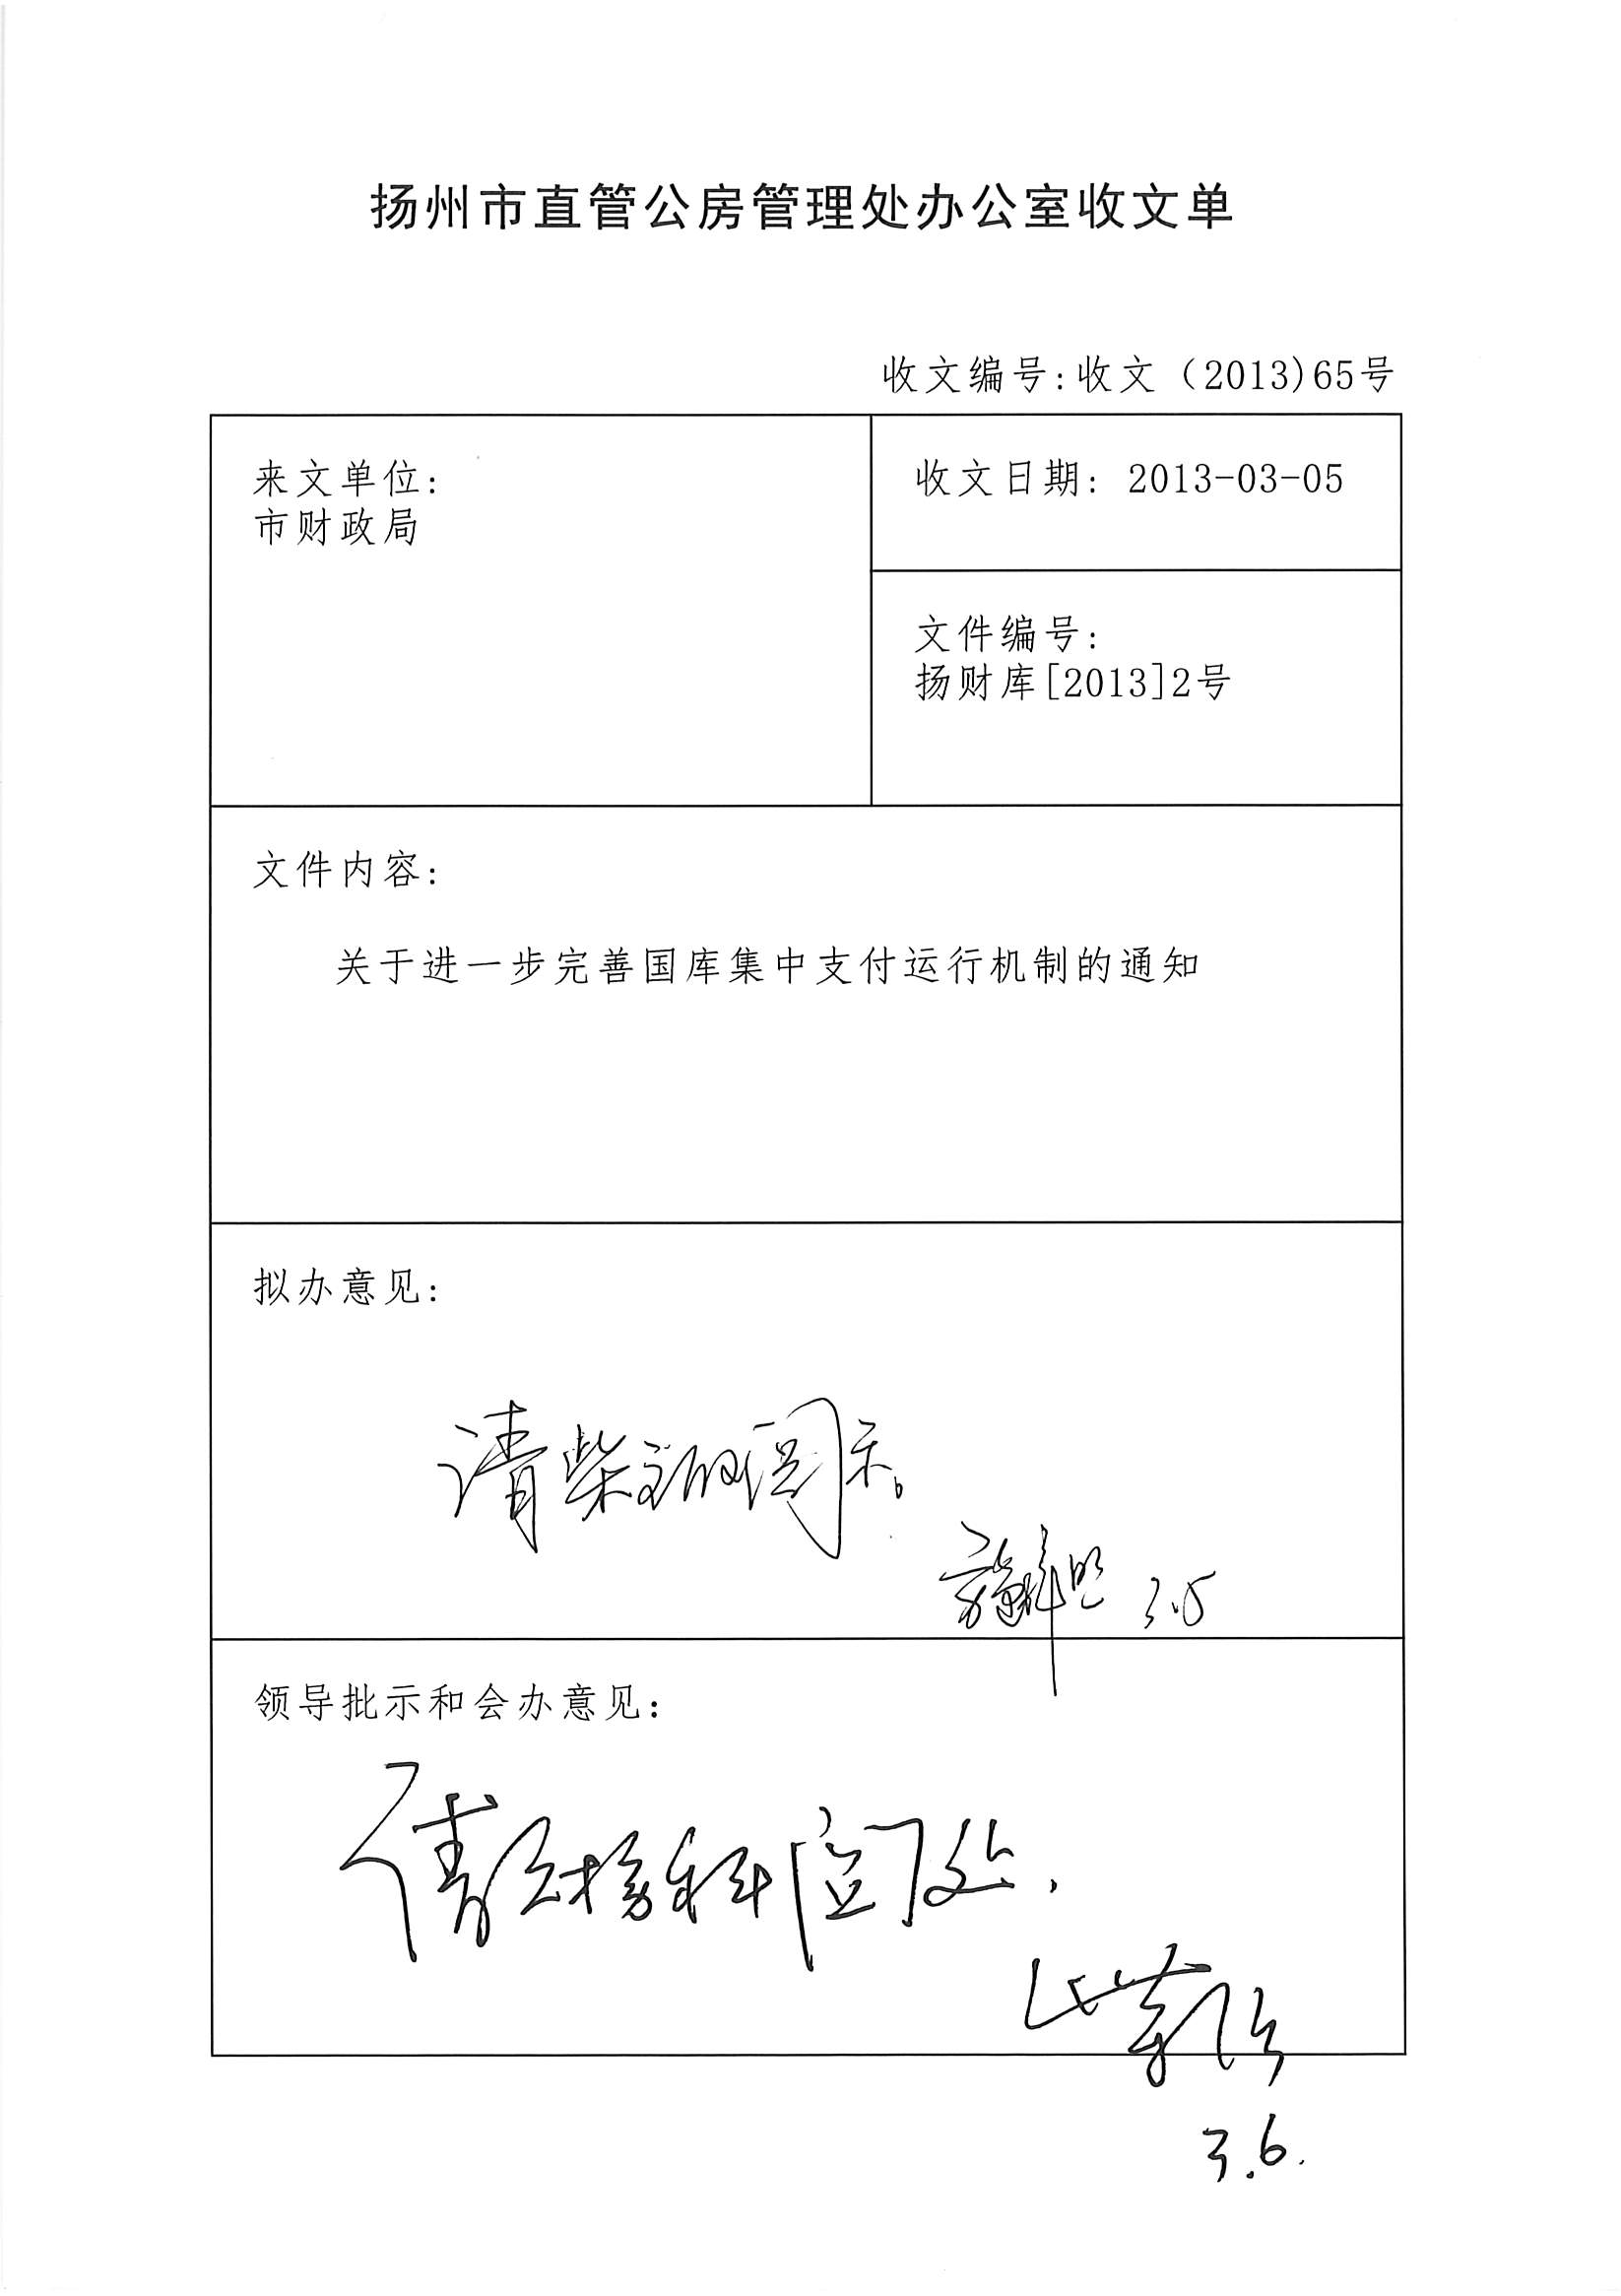 扬州市直管公房管理处办公室收文单
收文编号:收文（2013)65号
来文单位:
市财政局
收文日期: 2013-03-05
文件编号:
扬财库[2013]2号
文件内容:
关于进一步完善国库集中支付运行机制的通知
拟办意见:
请柴阅示。
3.5
领导批示和会办意见:
请科阅处.
3.6.